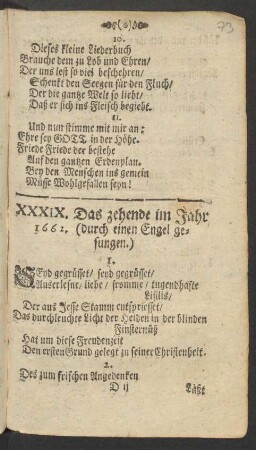 73
(o)
10.
Dieses kleine Liederbuch
Brauche dem zu Lob und Ehren/
Der uns lest so viel bescheren/
Schenkt den Seegen für den Fluch/
Der die gantze Welt so liebt/
Daß er sich ins Fleisch begiebt.
11.
Und nun stimme mit mir an:
Ehre sey GOTT in der Höhe.
Friede Friede der bestehe
Auf den gantzen Erdenplan.
Bey den Menschen ins gemein
Müsse Wohlgefallen seyn!
XXXIX. Das zehende im Jahr
1661. (durch einen Engel ge-
sungen.)
1.
SEyd gegrüsset/ seyd gegrüsset/
Auserlesne/ liebe/ fromme/ tugendhafte
Lisilis/
Der aus Jesse Stamm entspriesset/
Das durchleuchte Licht der Heiden in der blinden
Finsternüß
Hat um diese Freudenzeit
Den ersten Grund gelegt zu seiner Christenheit.
2.
Des zum frischen Angedenken
D ij
Läßt